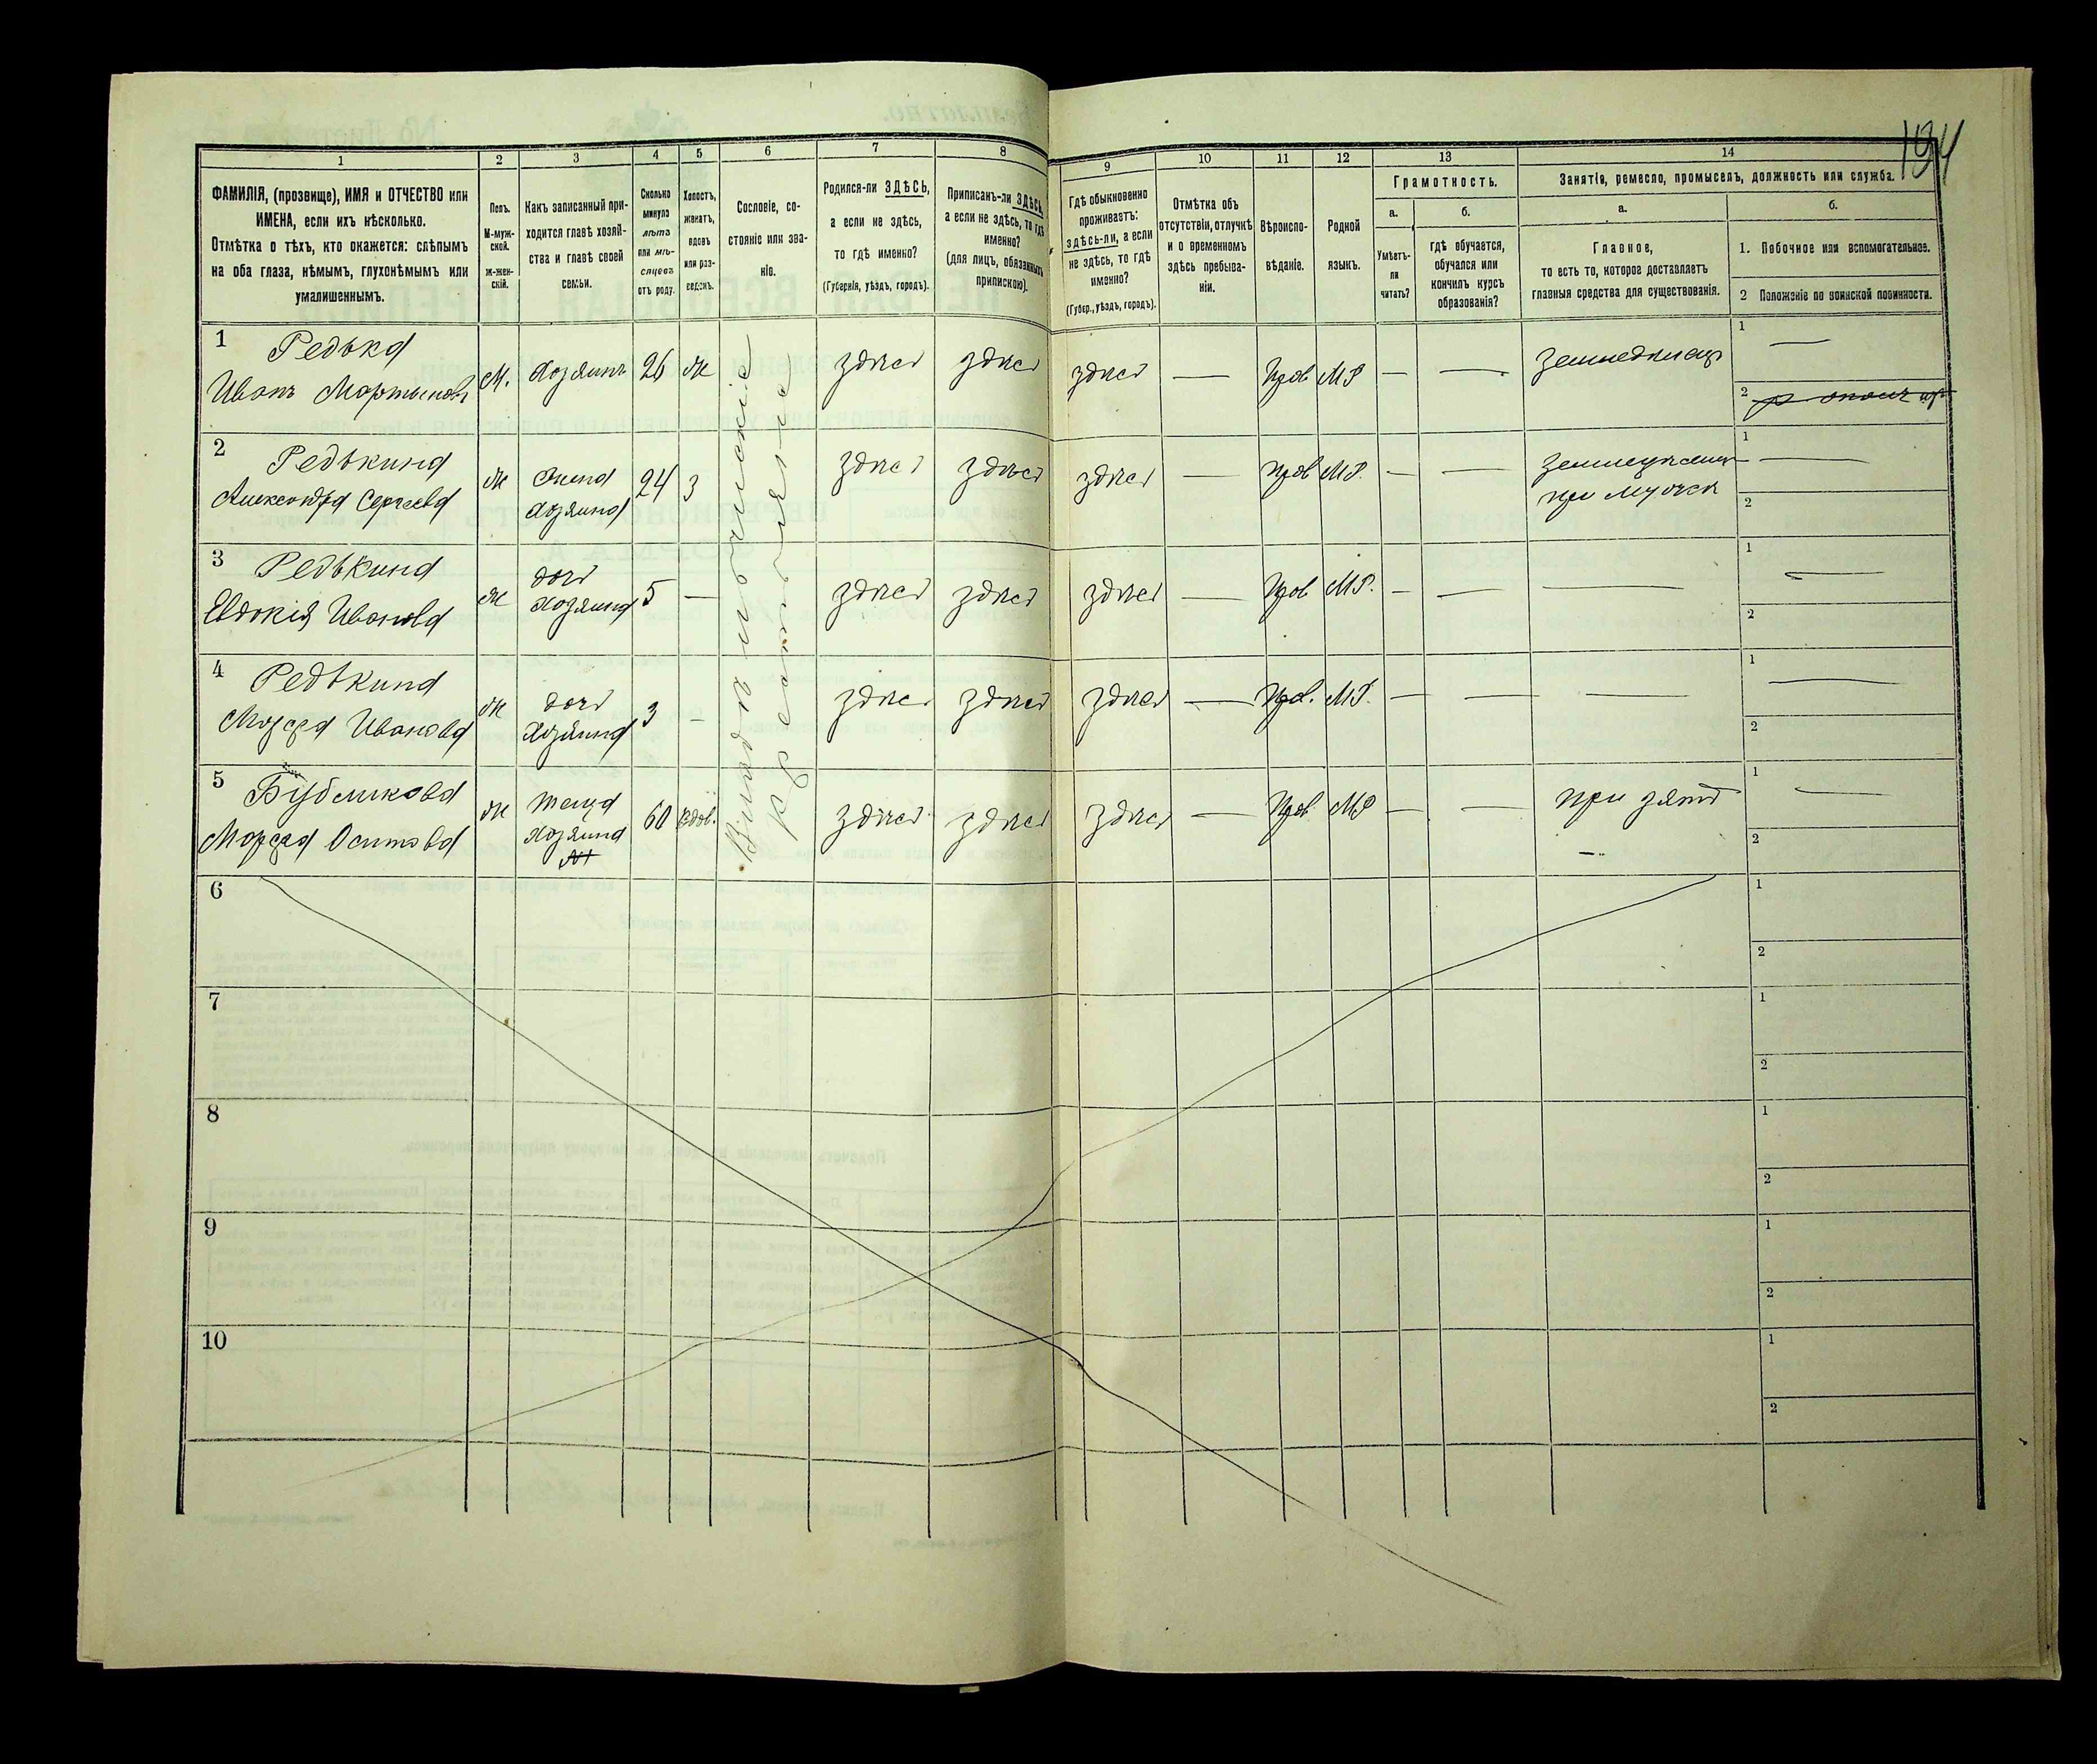 194
1
2
3
4
5
6
7
8
9
10
11
12
13
14
ФАМИЛІЯ, (прозвище), ИМЯ и ОТЧЕСТВО или
ИМЕНА, если ихъ нѣсколько.
Отмѣтка о тѣхъ, кто окажется: слѣпымъ
на оба глаза, нѣмымъ, глухонѣмымъ или
умалишеннымъ.
Полъ.
М-муж-
ской.
ж-жен-
скій.
Какъ записанный при-
ходится главѣ хозяй-
ства и главѣ своей
семьи.
Сколько
минуло
лѣтъ
или мѣ-
сяцевъ
отъ роду.
Холостъ,
женатъ,
вдовъ
или раз-
веденъ.
Сословіе, со-
стояніе или зва-
ніе.
Родился-ли ЗДѢСЬ,
а если не здѣсь,
то гдѣ именно?
(Губернія, уѣздъ, городъ).
Приписанъ-ли ЗДѢСЬ,
а если не здѣсь, то гдѣ
именно?
(для лицъ, обязанныхъ
припискою).
Гдѣ обыкновенно
проживаетъ:
здѣсь-ли, а если
не здѣсь, то гдѣ
именно?
(Губер., уѣздъ, городъ).
Отмѣтка объ
отсутствіи, отлучкѣ
и о временномъ
здѣсь пребыва-
ніи.
Вѣроиспо-
вѣданіе.
Родной
языкъ.
Грамотность.
а.
б.
Умѣетъ-
ли
читать?
гдѣ обучается,
обучался или
кончилъ курсъ
образованія?
Занятіе, ремесло, промыселъ, должность или служба.
а.
б.
Главное,
то есть то, которое доставляетъ
главныя средства для существованія.
1. Побочное или вспомогательное.
2 Положеніе по воинской повинности.
1 Редька
Иванъ Мартыновъ М. Хозяинъ 26 ж здѣсь здѣсь здѣсь — Прав МР — — земледѣлецъ 1 —
2
2 Редькина
Александра Сергѣева ж Жена хозяина 24 з здѣсь здѣсь здѣсь — Прав МР. — — 1 —
при мужѣ 2
3 Редькина
Евдокія Иванова ж дочь хозяина 5 — здѣсь здѣсь здѣсь — Прав МР. — — — 1 —
2
4 Редькина
Марфа Иванова ж дочь хозяина 3 — здѣсь здѣсь здѣсь — Прав. МР. — — — 1 —
2
5 Бубликова
Марфа Осипова ж теща хозяина 60 вдов. здѣсь здѣсь здѣсь — Прав МР — — при зятѣ 1 —
2
6 1
2
7 1
2
8 1
2
9 1
2
10 1
2